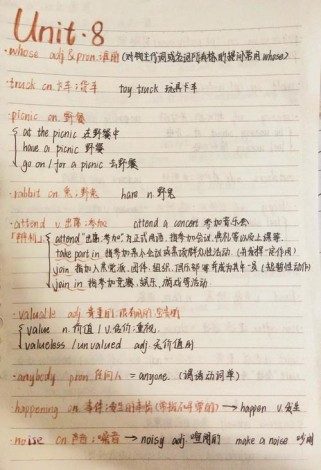 Unit·8
·whose adj&pron.谁的(对物主代词或名词所有格的提问常用whose)
·truck cn.卡车;货车 toy truck 玩具卡车
·picnic cn.野餐
at the picnic 在野餐中
have a picnic 野餐
go on / for a picnic 去野餐
·rabbit cn.兔;野兔 hare n.野兔
·attend v.出席;参加 attend a concert 参加音乐会
「辨析」attend"出席,参加"为正式用语,指参加会议,典礼等以及上课等.
take part in 指参加某个会议或某项群众性活动
join 指加入某党派、团体、组织、俱乐部等并成为其中一员(短暂性动作)
join in 指参加竞赛、娱乐、游戏等活动
·valuable adj.贵重的;很有用的
value n.价值 / v.估价;重视.
valueless / unvalued adj.无价值的
·anybody pron.任何人 = anyone. (谓语动词单)
·happening cn.事情;发生的事情(常指不寻常的) → happen v.发生
·noise cn.声音;噪音 → noisy adj.喧闹的 make a noise 吵闹